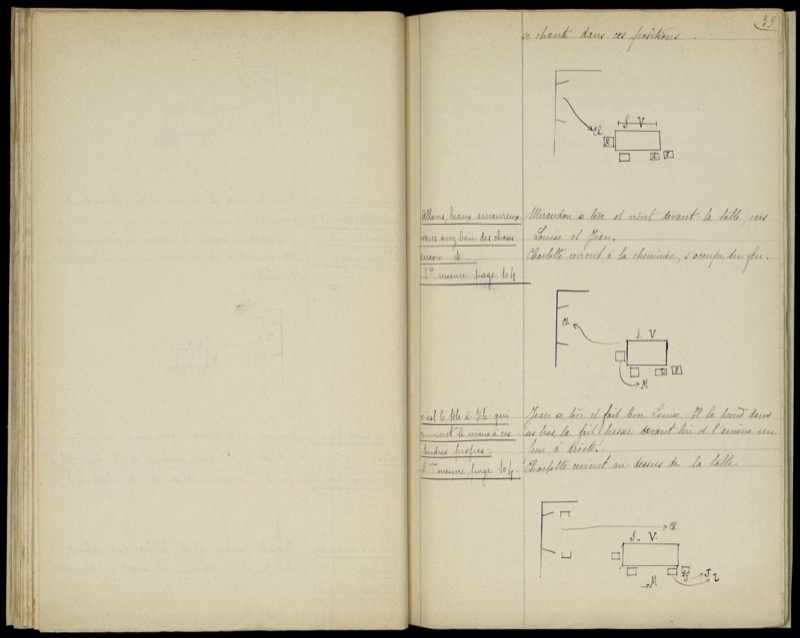 33
se chante dans ces positions.
S. V.
Ch.
M
L
J
Allons, beaux amoureux
vous avez bien des choses
encore de
1ère mesure page 104
Mirandon se lève et vient devant la table, vers
Louise et Jean.
Charlotte revient à la cheminée, s'occupe du feu.
Ch.
S. V
M
c'est le tête à tête qui
convient le mieux à ces
tendres propos.
mesure page 104.
Jean se lève et fait lever Louise. Il la prend dans
ses bras, la fait passer devant lui et l'amène un
peu à droite.
Charlotte revient au dessus de la table.
Ch.
S. V.
M
J
L